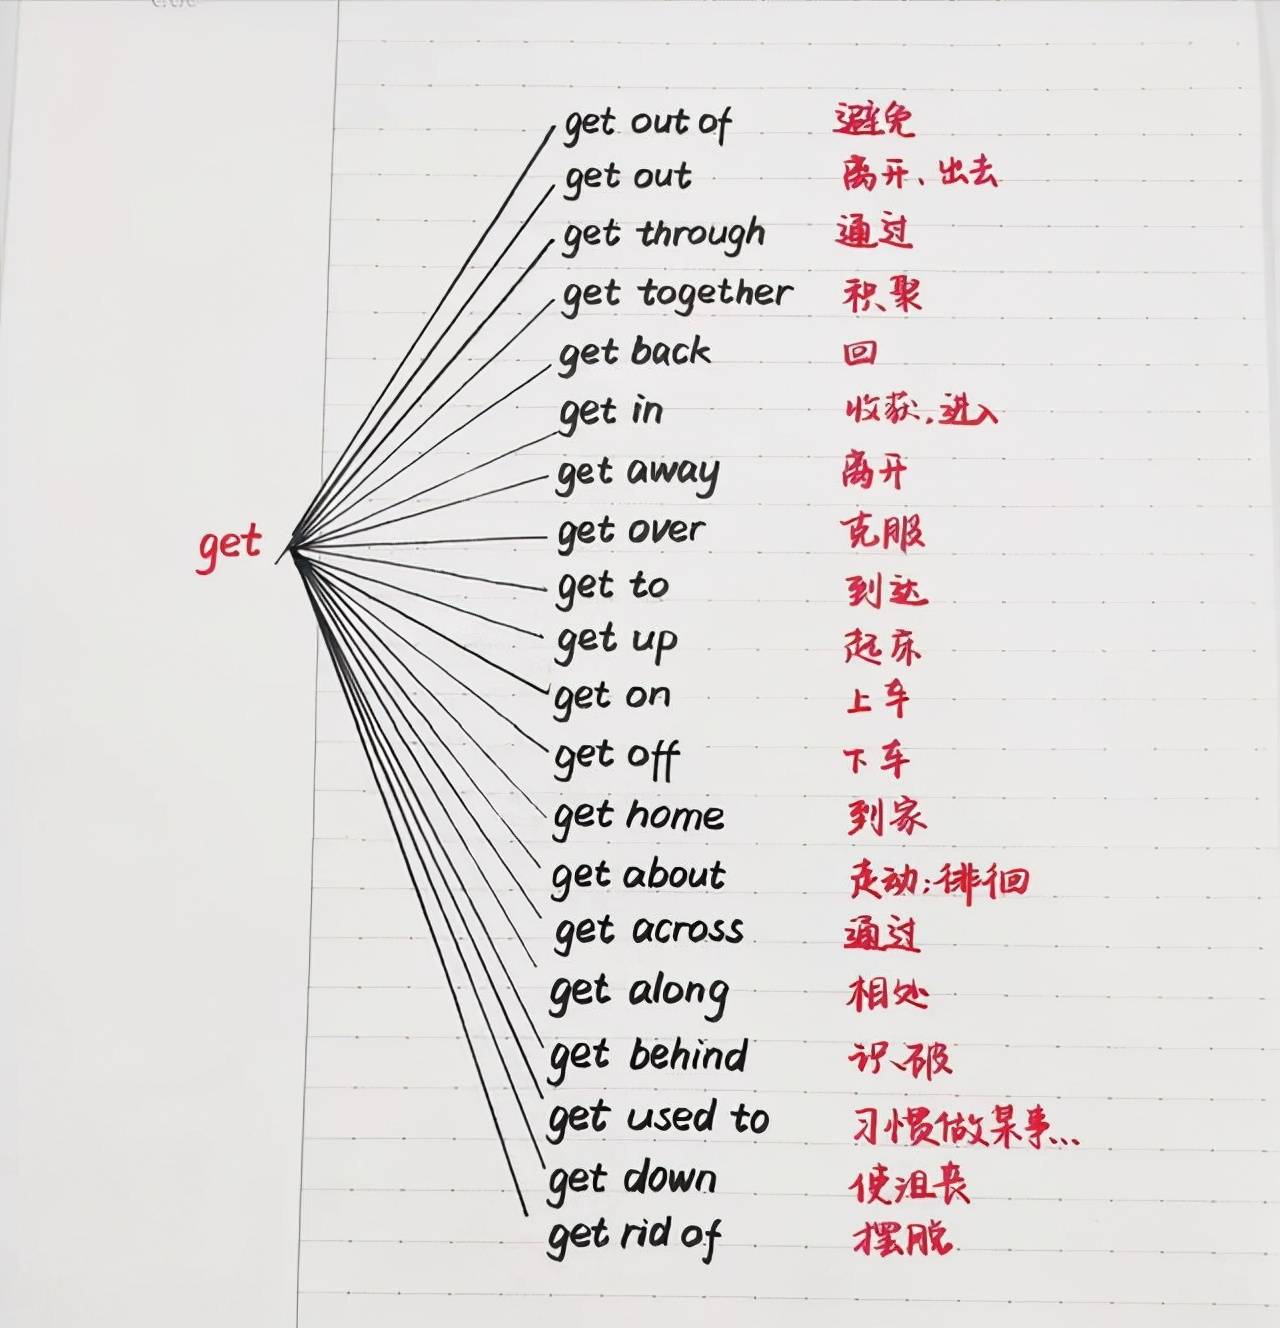 get out of 避免
get out 离开、出去
get through 通过
get together 积聚
get back 回
get in 收获,进入
get away 离开
get over 克服
get
get to 到达
get up 起床
get on 上车
get off 下车
get home 到家
get about 走动;徘徊
get across 通过
get along 相处
get behind 识破
get used to 习惯做某事...
get down 使沮丧
get rid of 摆脱